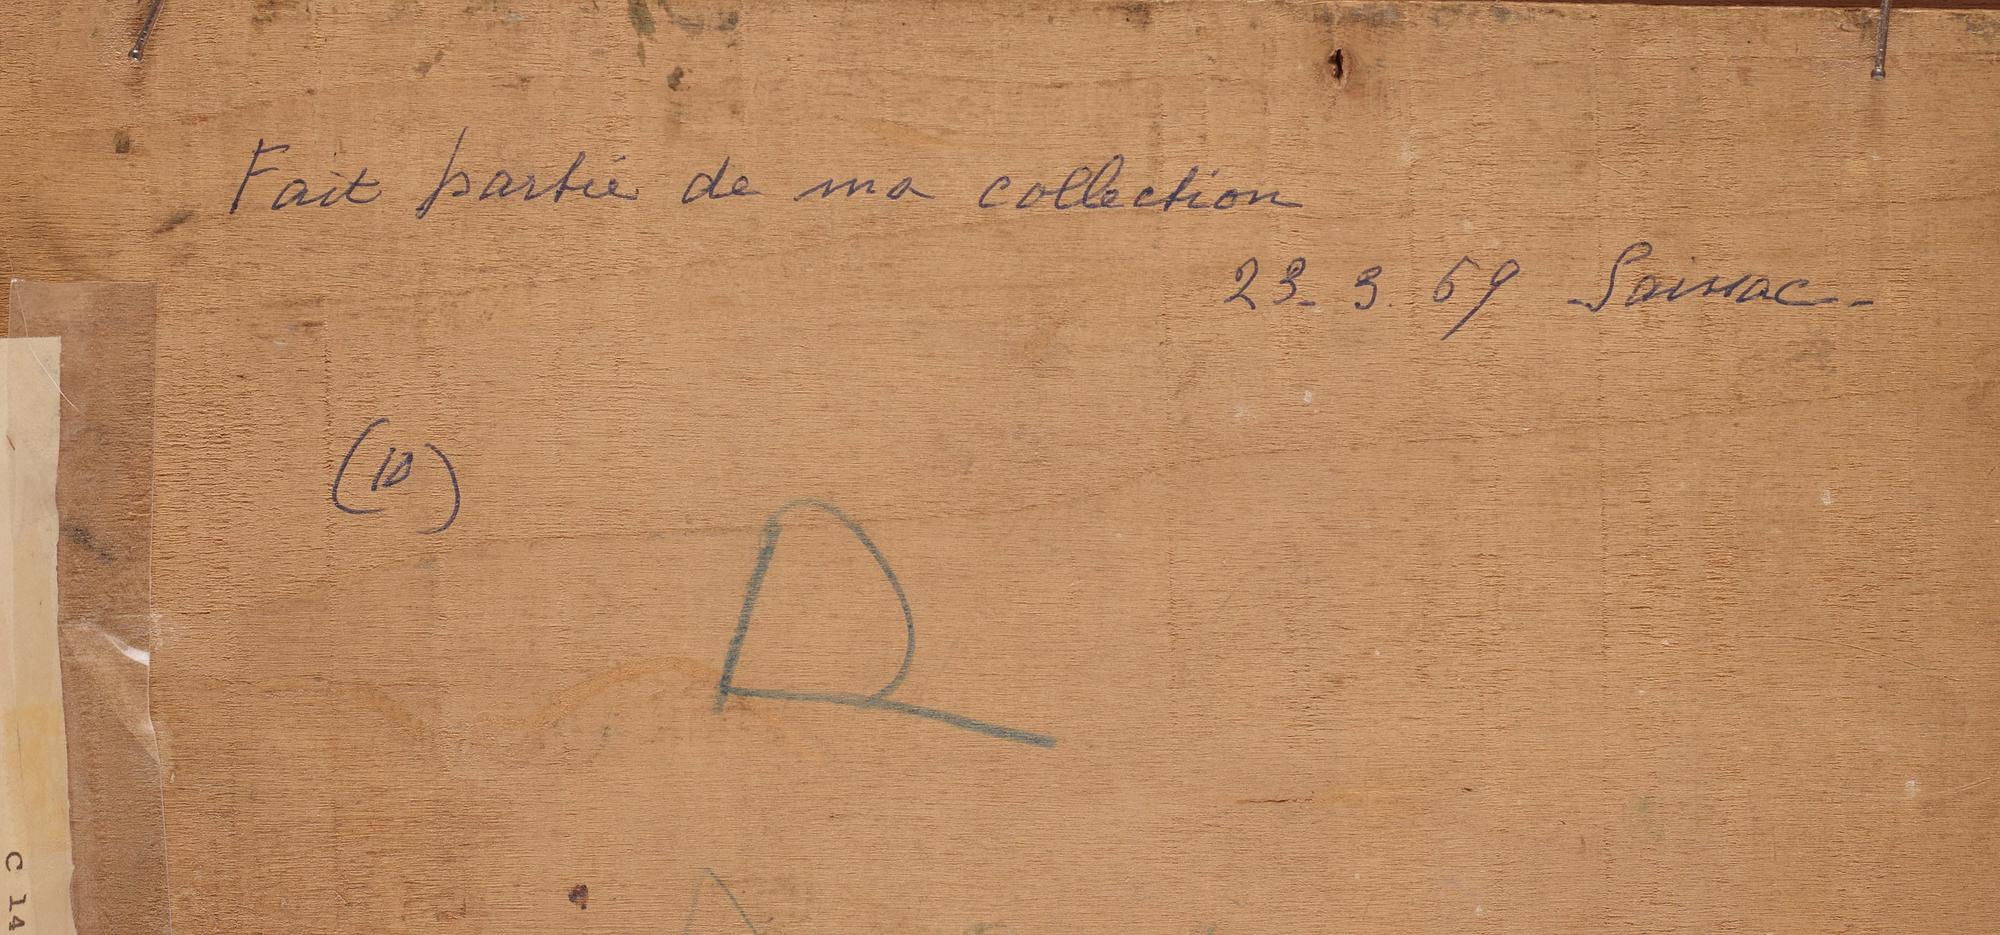 Fait partie de ma collection
23-3.69 Saissac-
(10)
D
C 14